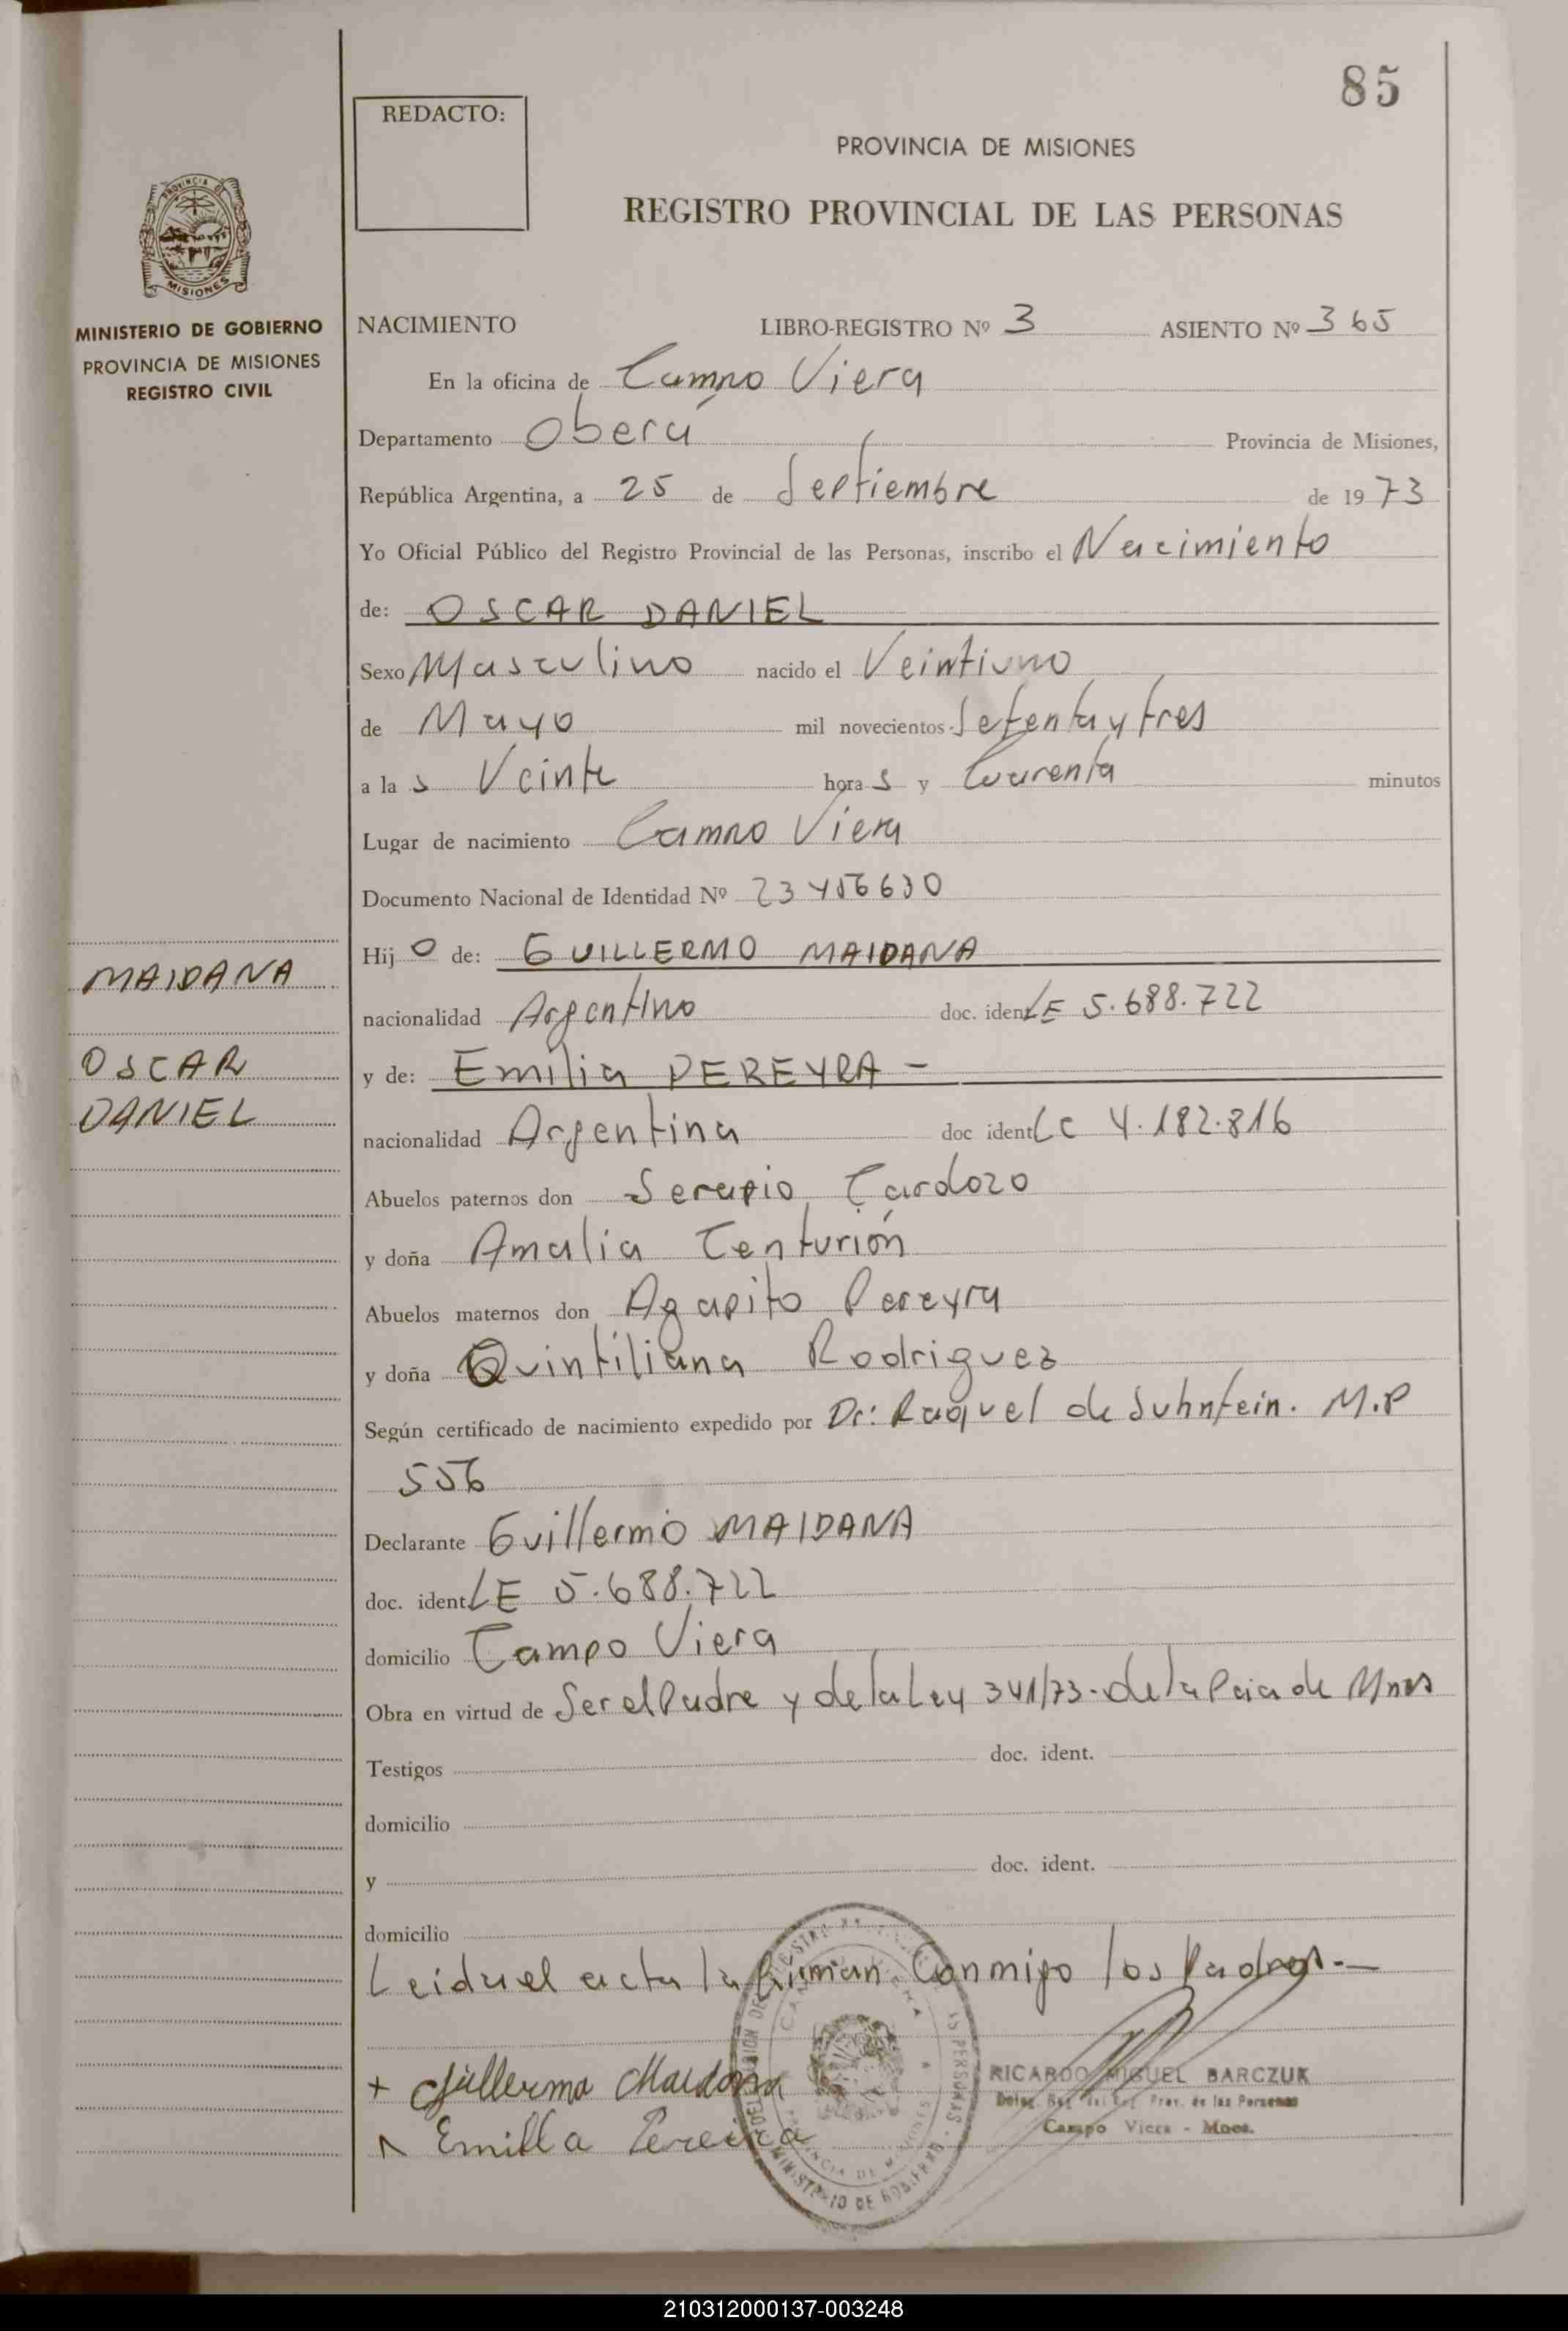 85
REDACTO:
PROVINCIA DE MISIONES
REGISTRO PROVINCIAL DE LAS PERSONAS
PROVINCIA DE
MISIONES
MINISTERIO DE GOBIERNO
PROVINCIA DE MISIONES
REGISTRO CIVIL
NACIMIENTO LIBRO-REGISTRO Nº 3 ASIENTO Nº 365
En la oficina de Campo Viera
Departamento Oberá Provincia de Misiones,
República Argentina, a 25 de Septiembre de 1973
Yo Oficial Público del Registro Provincial de las Personas, inscribo el Nacimiento
de: OSCAR DANIEL
Sexo Masculino nacido el Veintiuno
de Mayo mil novecientos Setenta y tres
a la s Veinte hora s y Cuarenta minutos
Lugar de nacimiento Campo Viera
Documento Nacional de Identidad Nº 23456630
Hij o de: GUILLERMO MAIDANA
MAIDANA
nacionalidad Argentino doc. ident LE 5.688.722
OSCAR
y de: Emilia PEREYRA -
DANIEL
nacionalidad Argentina doc ident LC 4.182.816
Abuelos paternos don Serapio Cardozo
y doña Amalia Centurión
Abuelos maternos don Agapito Pereyra
y doña Quintiliana Rodriguez
Según certificado de nacimiento expedido por Dr: Raquel de M.P
556
Declarante Guillermo MAIDANA
doc. ident. LE 5.688.722
domicilio Campo Viera
Obra en virtud de Ser el Padre y de la Ley 341/73- de la Pcia de Mnes
Testigos doc. ident.
domicilio
y doc. ident.
domicilio
Leida el acta la firman Conmigo los Padres.—
+ Guillermo Maidana
Emilla Pereira
RICARDO MIGUEL BARCZUK
Deleg. Reg. del Reg. Prov. de las Personas
Campo Viera - Mnes.
MINISTERIO DE GOBIERNO
210312000137-003248